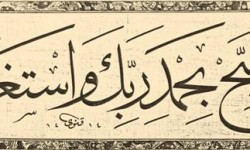 بِّحْ بِحَمْدِ رَبِّكَ وَاسْتَغ